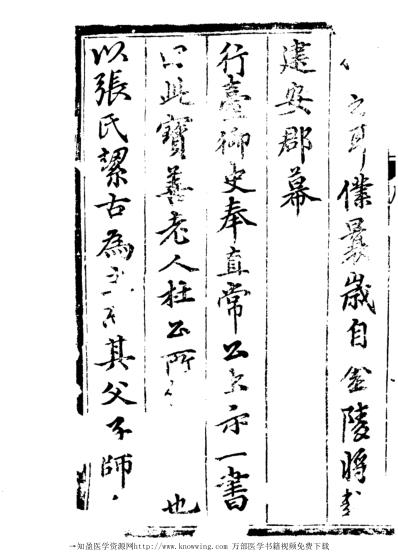 之耳僕曩歲自金陵將
建安郡幕
行臺御史奉直常公出示一書
曰此寶善老人杜公所 也
以張氏絜古為 其父子師
→知盈医学资源网http://www.knowing.com 万部医学书籍视频免费下载